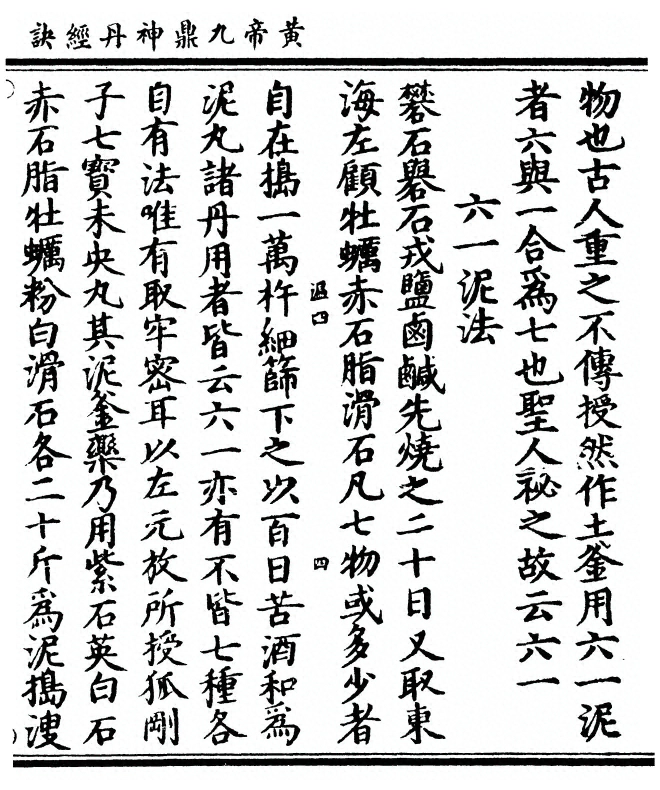 黃帝九鼎神丹經訣
物也古人重之不傳授然作土釜用六一泥
者六與一合爲七也聖人祕之故云六一
六一泥法
礬石礜石戎鹽鹵鹹先燒之二十日又取東
海左顧牡蠣赤石脂滑石凡七物或多少者
四
自在搗一萬杵細篩下之以百日苦酒和爲
泥丸諸丹用者皆云六一亦有不皆七種各
自有法唯有取牢密耳以左元放所授狐剛
子七寶未央丸其泥釜藥乃用紫石英白石
赤石脂牡蠣粉白滑石各二十斤爲泥搗溲